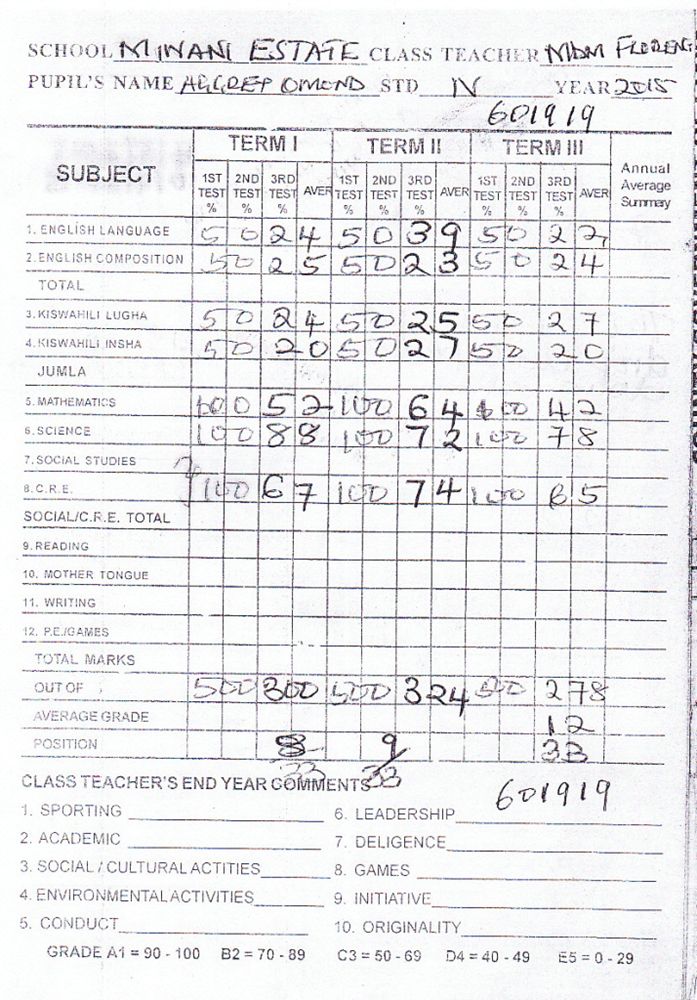 SCHOOL MIWANI ESTATE CLASS TEACHER MDM FLORENC
PUPIL'S NAME AGGREY OMOND STD IV YEAR 2015
601919
SUBJECT TERM I TERM II TERM III Annual Average Summary
1ST TEST % 2ND TEST % 3RD TEST % AVER 1ST TEST % 2ND TEST % 3RD TEST % AVER 1ST TEST % 2ND TEST % 3RD TEST % AVER
1. ENGLISH LANGUAGE 50 24 50 39 50 22
2. ENGLISH COMPOSITION 50 25 50 23 50 24
TOTAL
3. KISWAHILI LUGHA 50 24 50 25 50 27
4. KISWAHILI INSHA 50 20 50 27 50 20
JUMLA
5. MATHEMATICS 100 52 100 64 100 42
6. SCIENCE 100 88 100 72 100 78
7. SOCIAL STUDIES
8. C.R.E. 100 67 100 74 100 65
SOCIAL/C.R.E. TOTAL
9. READING
10. MOTHER TONGUE
11. WRITING
12. P.E./GAMES
TOTAL MARKS
OUT OF 500 300 500 324 500 278
AVERAGE GRADE 12
POSITION 8 9 33
33 33
CLASS TEACHER'S END YEAR COMMENTS 601919
1. SPORTING 6. LEADERSHIP
2. ACADEMIC 7. DELIGENCE
3. SOCIAL / CULTURAL ACTITIES 8. GAMES
4. ENVIRONMENTAL ACTIVITIES 9. INITIATIVE
5. CONDUCT 10. ORIGINALITY
GRADE A1 = 90 - 100 B2 = 70 - 89 C3 = 50 - 69 D4 = 40 - 49 E5 = 0 - 29